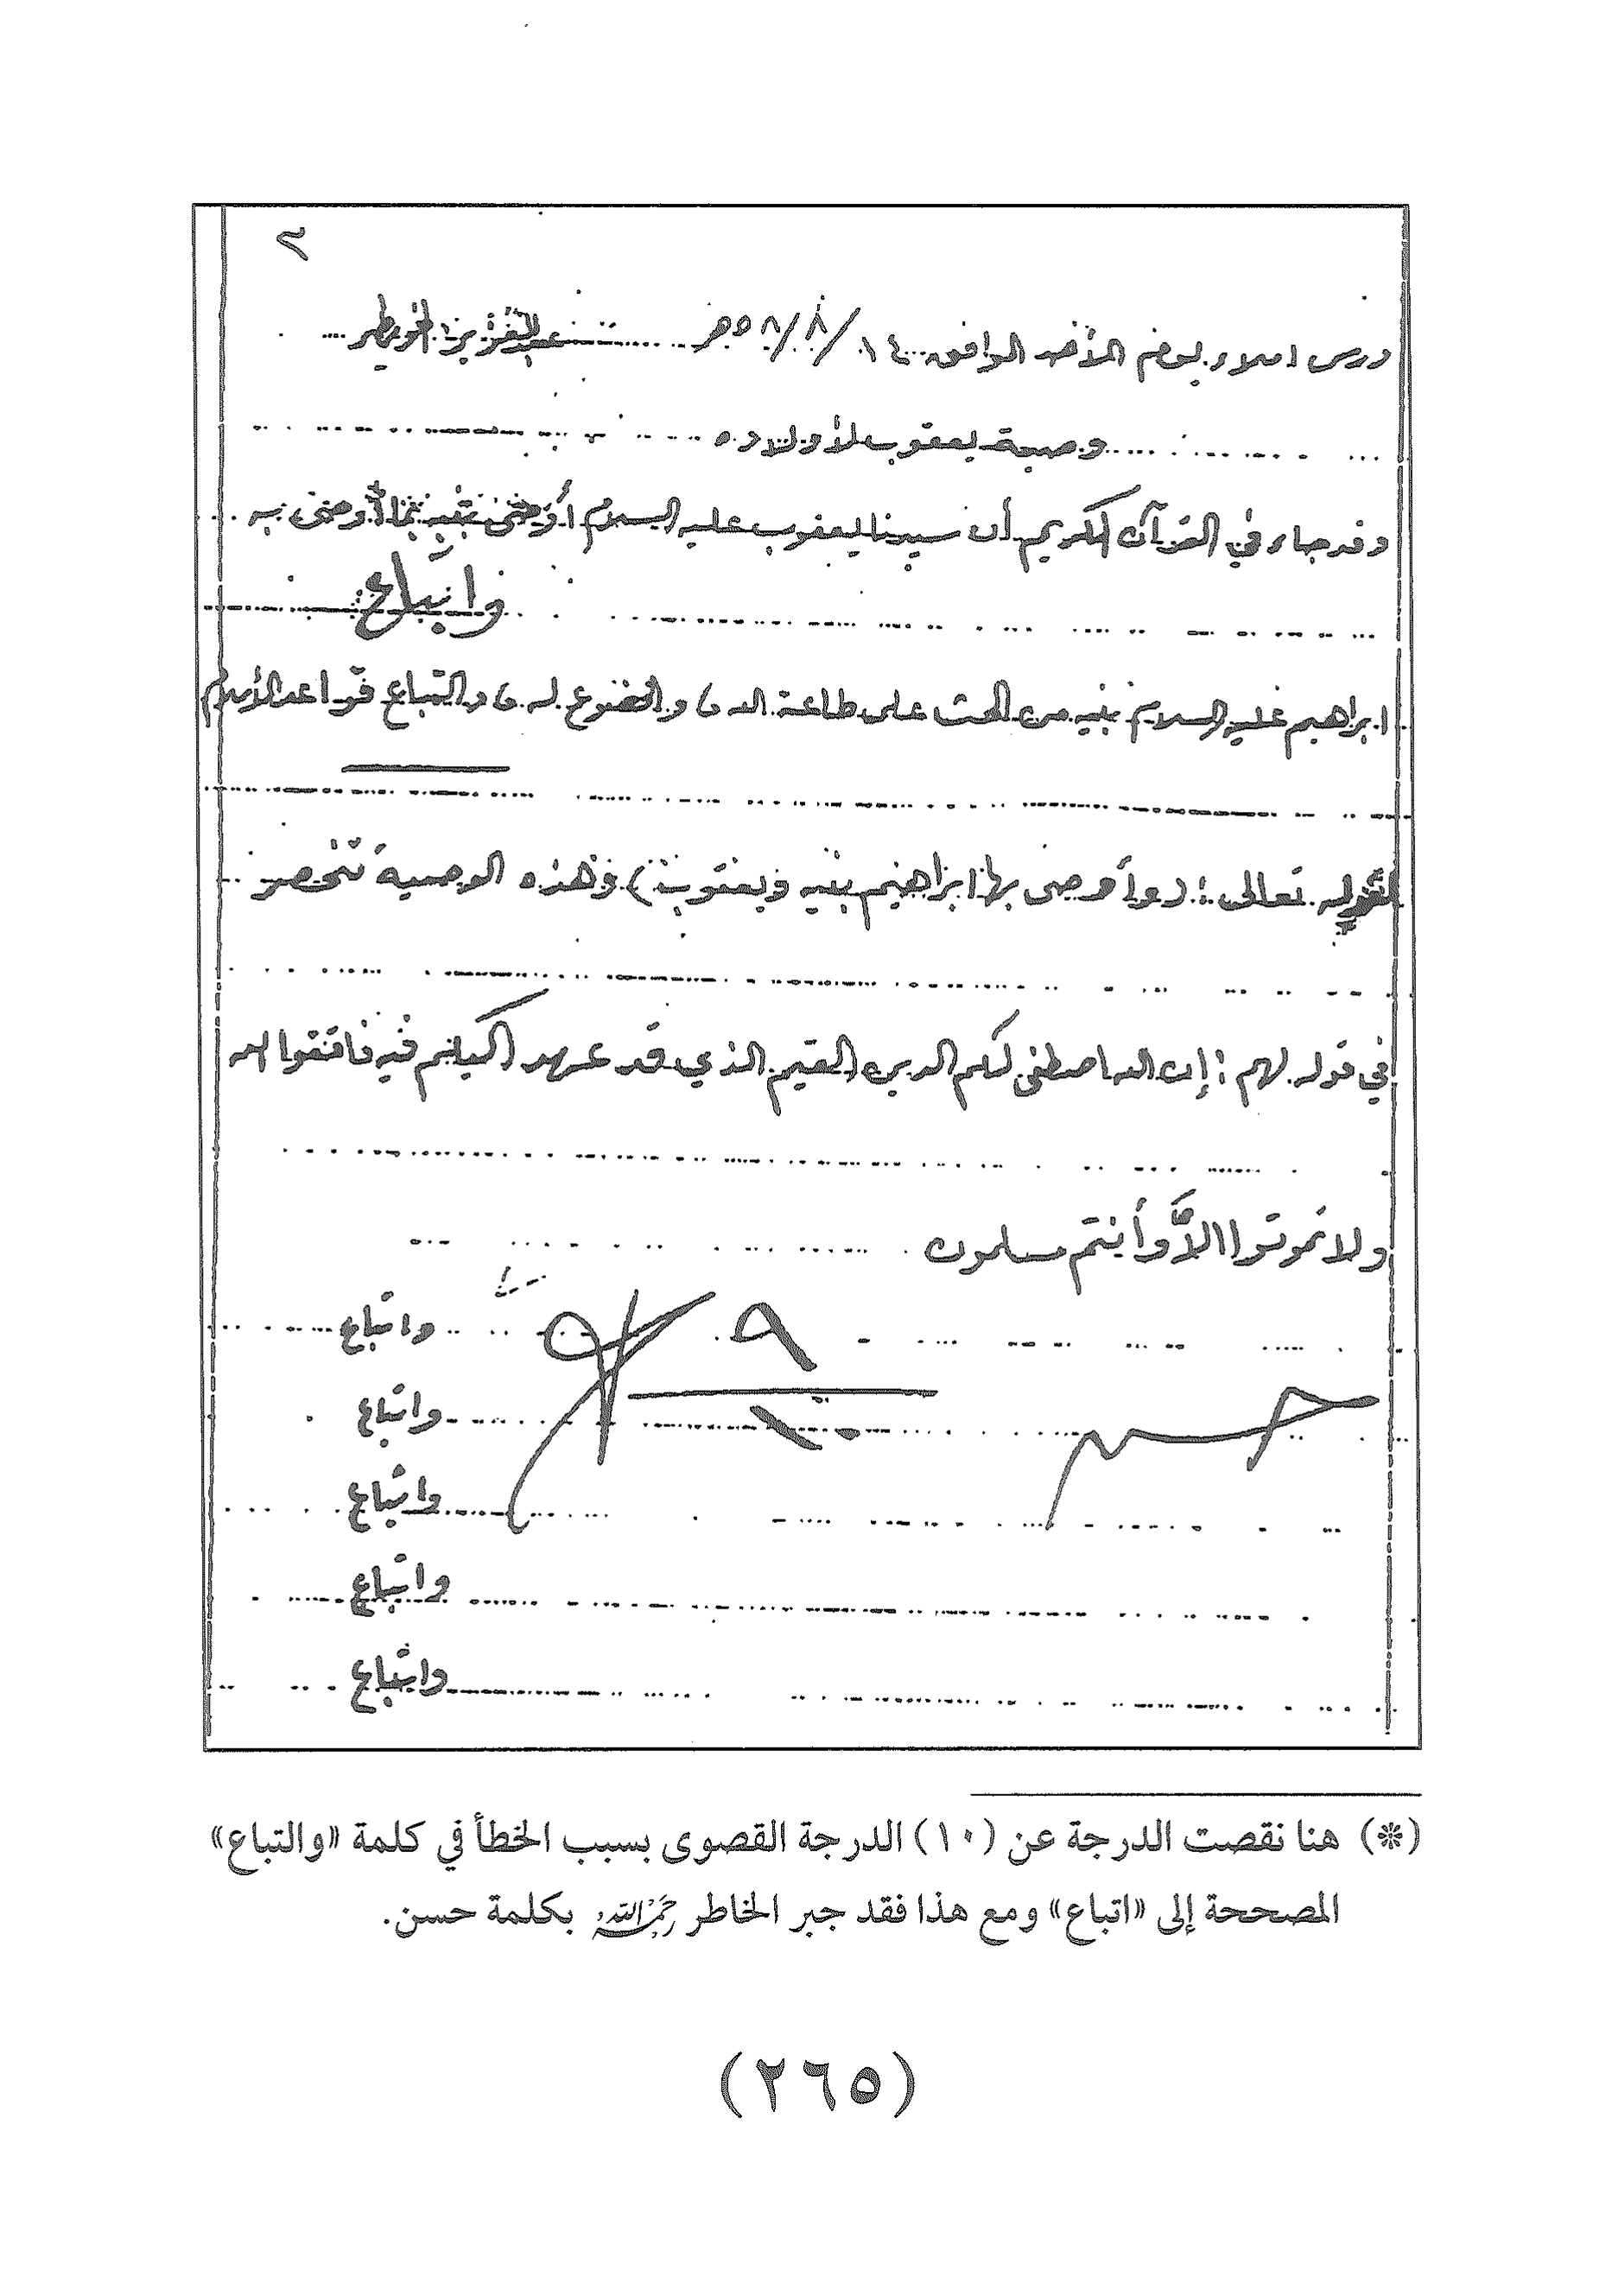 ٢
درس املاء ليوم الأحد الموافق ١٤/٨/٥٨هـ عبدالعزيز الخويطر
وصية يعقوب لأولاده
وقد جاء في القرآن الكريم أن سيدنا يعقوب عليه السلام أوصى بنيه بما أوصى به
واتباع
ابراهيم عليه السلام بنيه من الحث على طاعة الله والخضوع له والتباع قواعد الأسلام
لقوله تعالى : (وأوصى بها ابراهيم بنيه ويعقوب) وهذه الوصية تنحصر
في قوله لهم : إن الله اصطفى لكم الدين القيم الذي قد عهد اليكم فيه فاتقوا الله
ولا تموتوا الا وأنتم مسلمون
حسن ٩/١٠
واتباع
واتباع
واتباع
واتباع
واتباع
(*) هنا نقصت الدرجة عن (١٠) الدرجة القصوى بسبب الخطأ في كلمة «والتباع»
المصححة إلى «اتباع» ومع هذا فقد جبر الخاطر رحمه الله بكلمة حسن.
(٢٦٥)